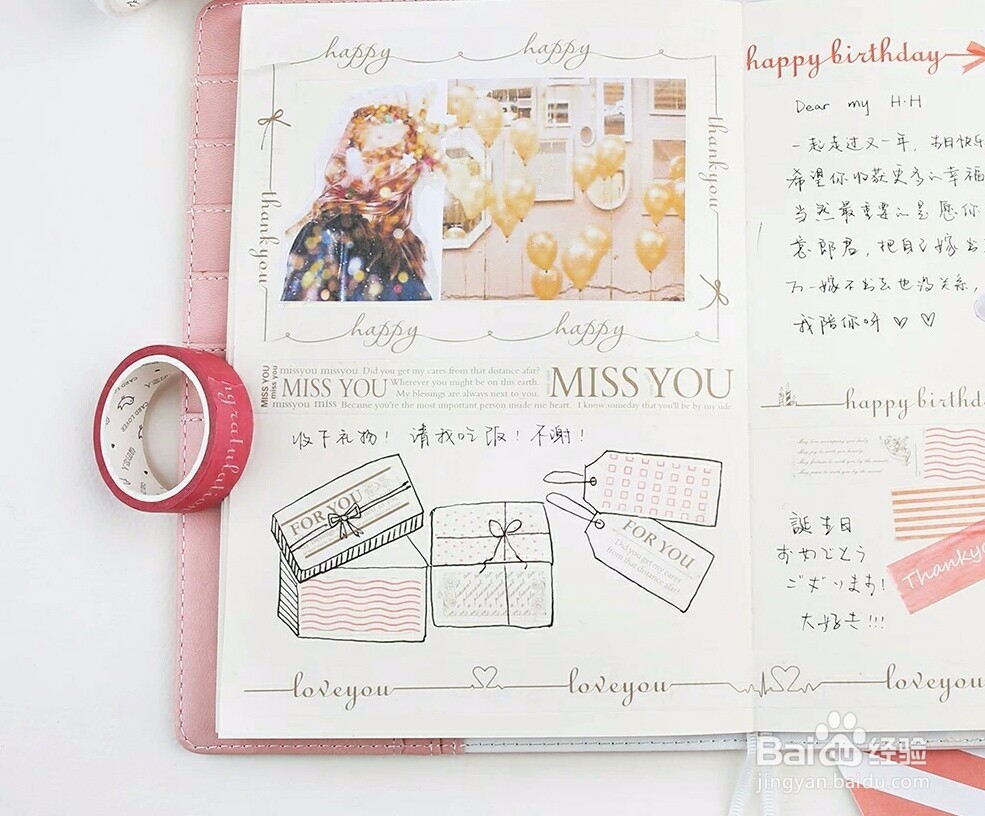 happy happy
thankyou
thankyou
happy happy
MISS YOU
miss you
missyou missyou. Did you get my cares from that distance afar?
MISS YOU Wherever you might be on this earth.
My blessings are always next to you.
missyou miss Because you're the most important person inside me heart. I know someday that you'll be by my side
MISS YOU
收下礼物！请我吃饭！不谢！
FOR YOU
FOR YOU
Did you get my cares
from that distance afar?
loveyou loveyou
happy birthday
Dear my H·H
一起走过又一年，生日快乐
希望你收获更多的幸福
当然最重要的是愿你
意郎君，把自己嫁出
万一嫁不出去也没关系，
我陪你呀♡♡
happy birthd
誕生日
おめでとう
ございます!
大好き!!!
Thankyo
loveyou
CARD LOVER
Baidu经验
jingyan.baidu.com